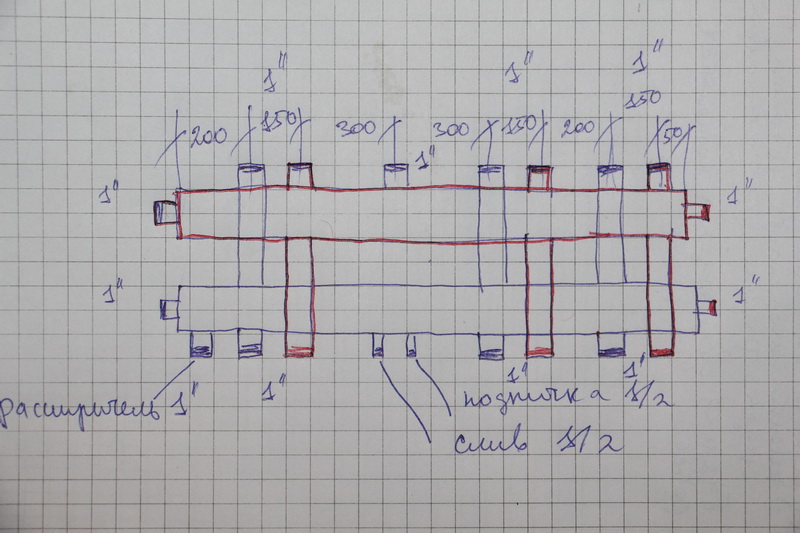 1"
1"
1"
200 150 300 300 150 200 150 50
1"
1" 1"
1" 1"
1" 1" 1"
расширитель 1"
подпитка 1/2
слив 1/2